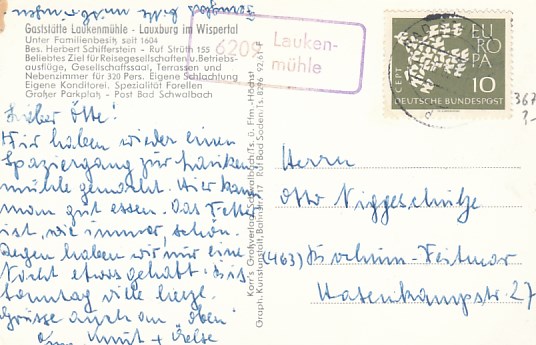 Gaststätte Laukenmühle - Lauxburg im Wispertal
Unter Familienbesitz seit 1604
Bes. Herbert Schifferstein - Ruf Strüth 155
Beliebtes Ziel für Reisegesellschaften u. Betriebs-
ausflüge, Gesellschaftssaal, Terrassen und
Nebenzimmer für 320 Pers. Eigene Schlachtung
Eigene Konditorei. Spezialität Forellen
Großer Parkplatz - Post Bad Schwalbach
6209 Lauken-
mühle
EUROPA
CEPT
10
DEUTSCHE BUNDESPOST
367
Lieber Otto!
Wir haben wieder einen
Spaziergang zur Lauken-
mühle gemacht. Hier kann
man gut essen. Das Wetter
ist, wie immer, schön.
Regen haben wir nur eine
Nacht etwas gehabt. Bis
Sonntag
Grüsse auch an "oben"
Knut +
Karr's Großverlag, Schwalbach/Ts. ü. Ffm.-Höchst
Graph. Kunstanstalt, Bahnstr. 17 Ruf Bad Soden/Ts. 8296
Herrn
Otto Niggeschulze
(463) Bochum-Weitmar
Hasenkampstr. 27